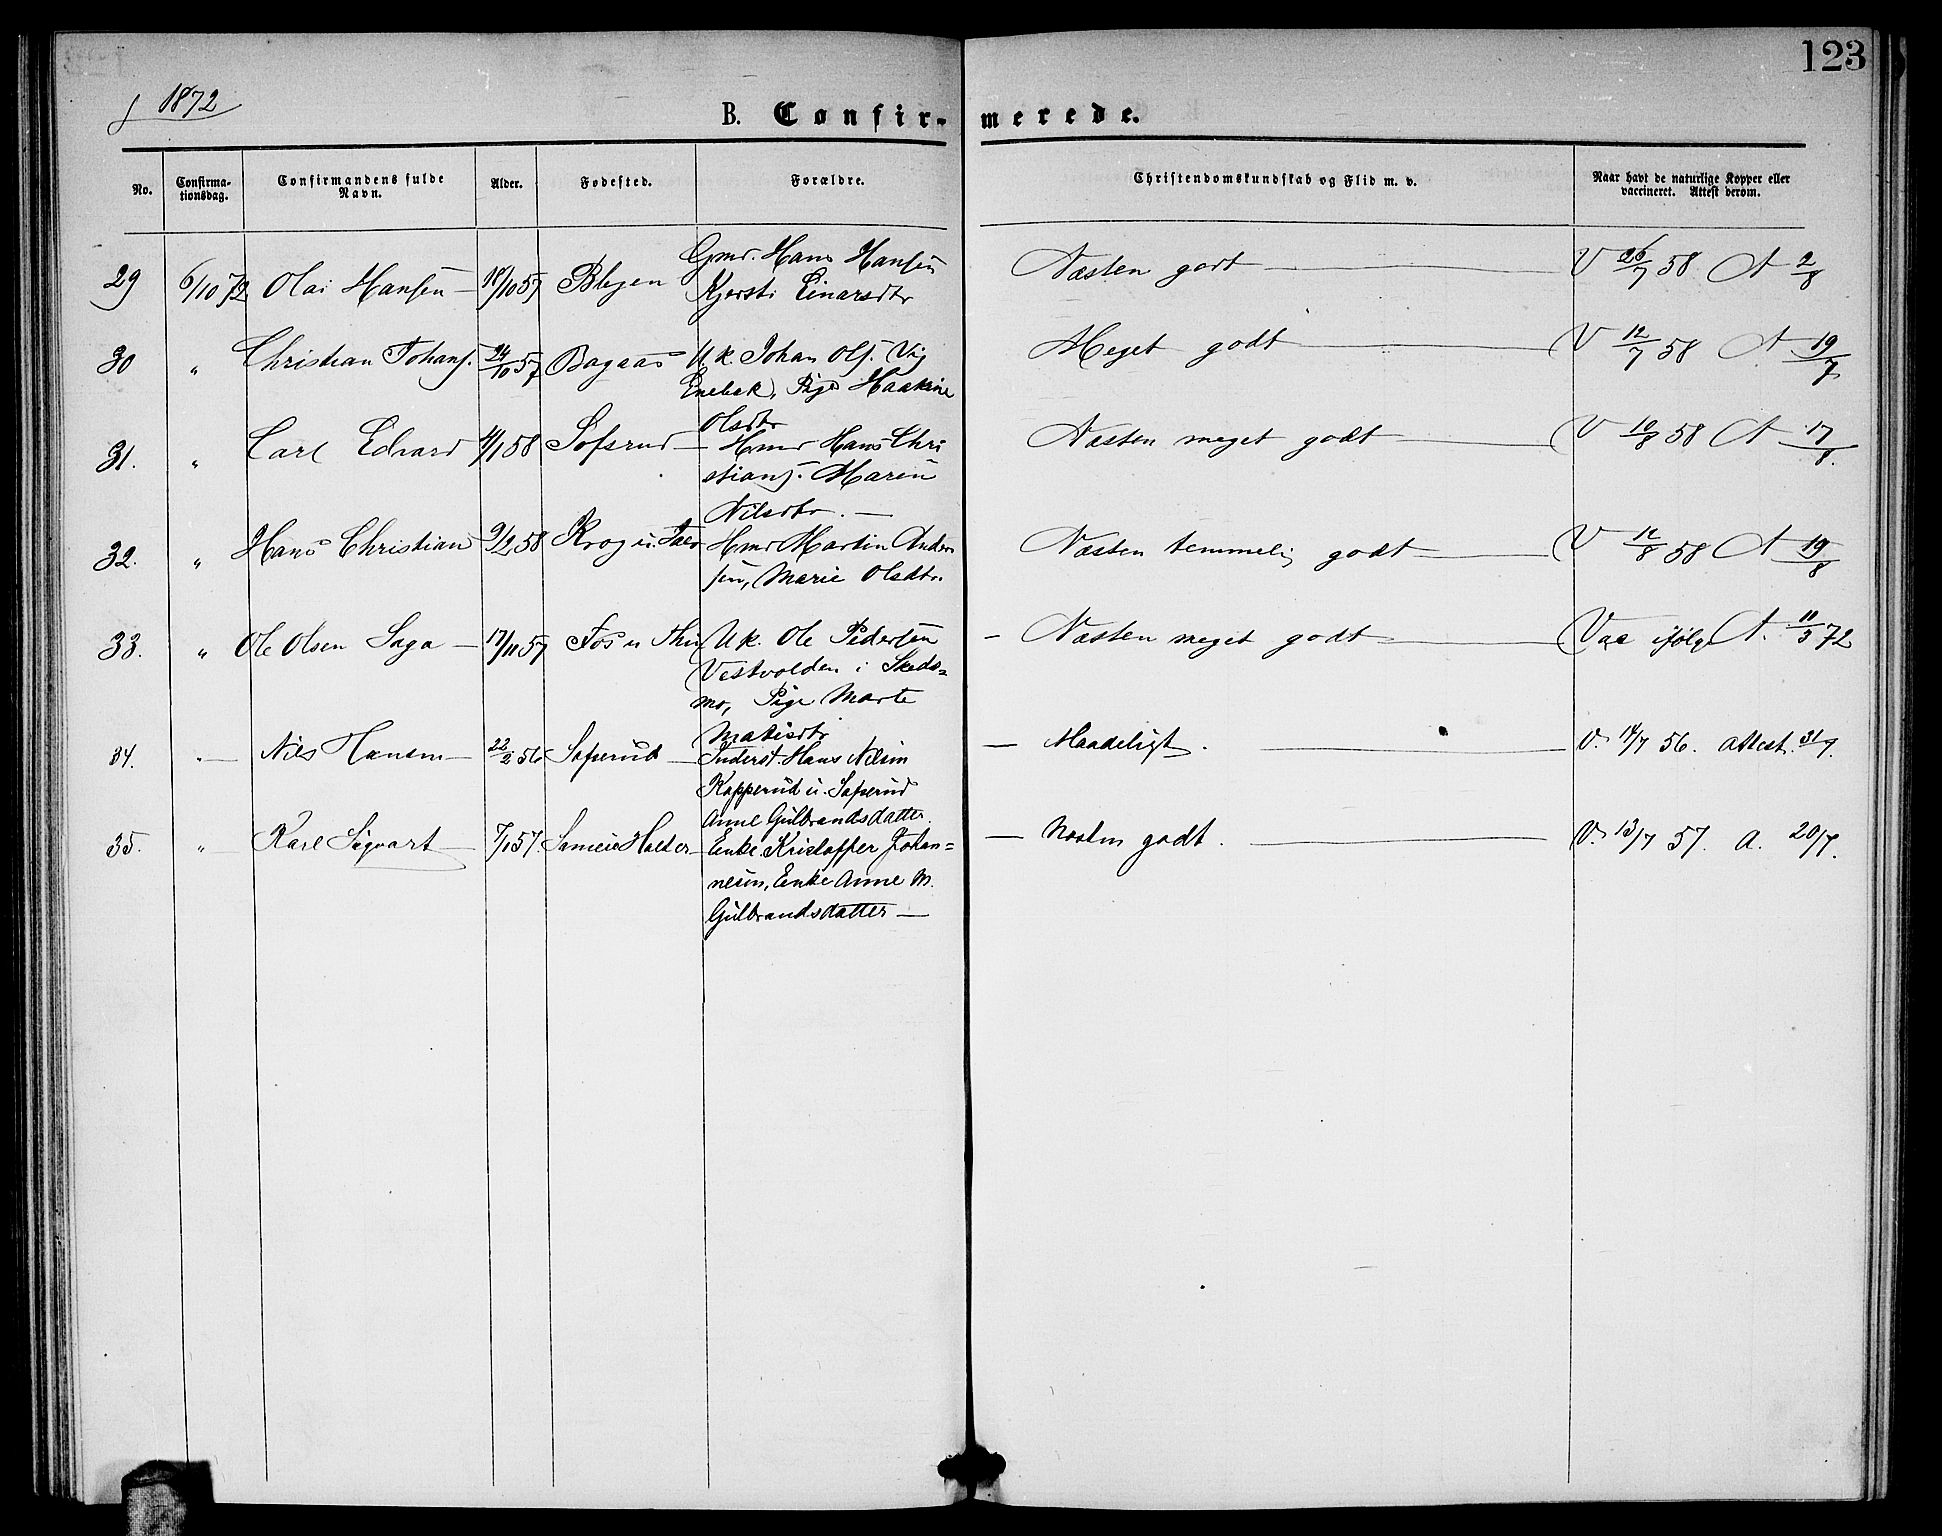 123
1872
B. Confir-merede.
No. Confirma-tionsdag. Confirmandens fulde Navn. Alder. Fødested. Forældre. Christendomskundskab og Flid m. v. Naar havt de naturlige Kopper eller vaccineret. Attest derom.
29 6/10 72 Olai Hansen 18/10 57 Blegen Gmd. Hans Hansen Næsten godt V 26/7 58 A 2/8
Kjersti Einarsdtr
30 " Christian Johans. 24/10 57 Bagaas U.k. Johan Ols. Vig Meget godt V 12/7 58 A 19/7
Enebak, Pige Haakine
Olsdtr
31. " Carl Edvard 4/1 58 Sofsrud Hmd Hans Chri Næsten meget godt V 10/8 58 A 17/8.
stians. Maren
Nilsdtr.
32. " Hans Christian 9/2 58 Krog u. Hmd Martin Ander Næsten temmelig godt V 12/8 58 A 19/8
sen, Marie Olsdtr.
33. " Ole Olsen Saga 17/11 57 Fos u U.k. Ole Pedersen - Næsten meget godt Vac ifølge A. 11/3 72
Vestvolden i Skeds=
mo, Pige Marte
Matisdtr
34. " Nils Hansen 22/2 56 Soperud Inderst. Hans Nilsen - Maadeligt. V. 14/7 56. Attest. 31/7.
Kopperud u. Soperud
Anne Gulbrandsdatter.
35. " Karl Sigvart 7/1 57. Holter Enke. Kristoffer Johan= - Næsten godt. V. 13/7 57. A. 20/7.
nesen, Enke Anne M.
Gulbrandsdatter